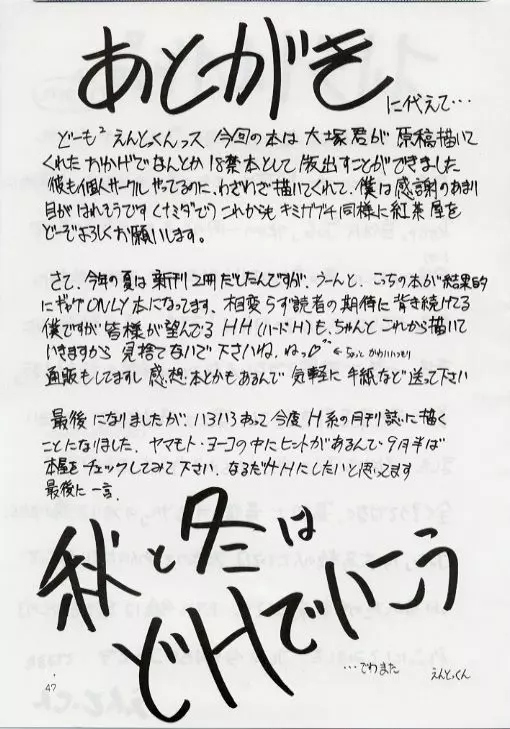 あとがき
に代えて…
どーも² えんどっくんっス 今回の本は 大塚君が 原稿描いて
くれたおかげでなんとか 18禁本として 版出すことができました
彼も個人サークル やってるのに、わざわざ描いてくれて、僕は感謝のあまり
目がはれそうです (ナミダで) これからも キミガブチ同様に紅茶屋を
どーぞよろしくお願いします。
さて、今年の夏は 新刊2冊だしたんですが、うーんと、こっちの本が結果的
にギャグONLY本になってます、相変らず読者の期待に背き続けてる
僕ですが 皆様が望んでる HH (ハードH)も、ちゃんと これから描いて
いきますから 見捨てないで下さいね。ねっ♡ ←ちょっとかわいいっぽい
通販もしてますし 感・想・本とかもあるんで 気軽に 手紙など送って下さい
最後になりましたが、いろいろあって 今度H系の月刊誌に描く
ことになりました、ヤマモト・ヨーコの中にヒントがあるんで・9月半ば
本屋をチェックしてみて下さい、なるだけHにしたいと思ってます
最後に一言、
秋と冬は
どHでいこう
…でわまた
えんどっくん
47